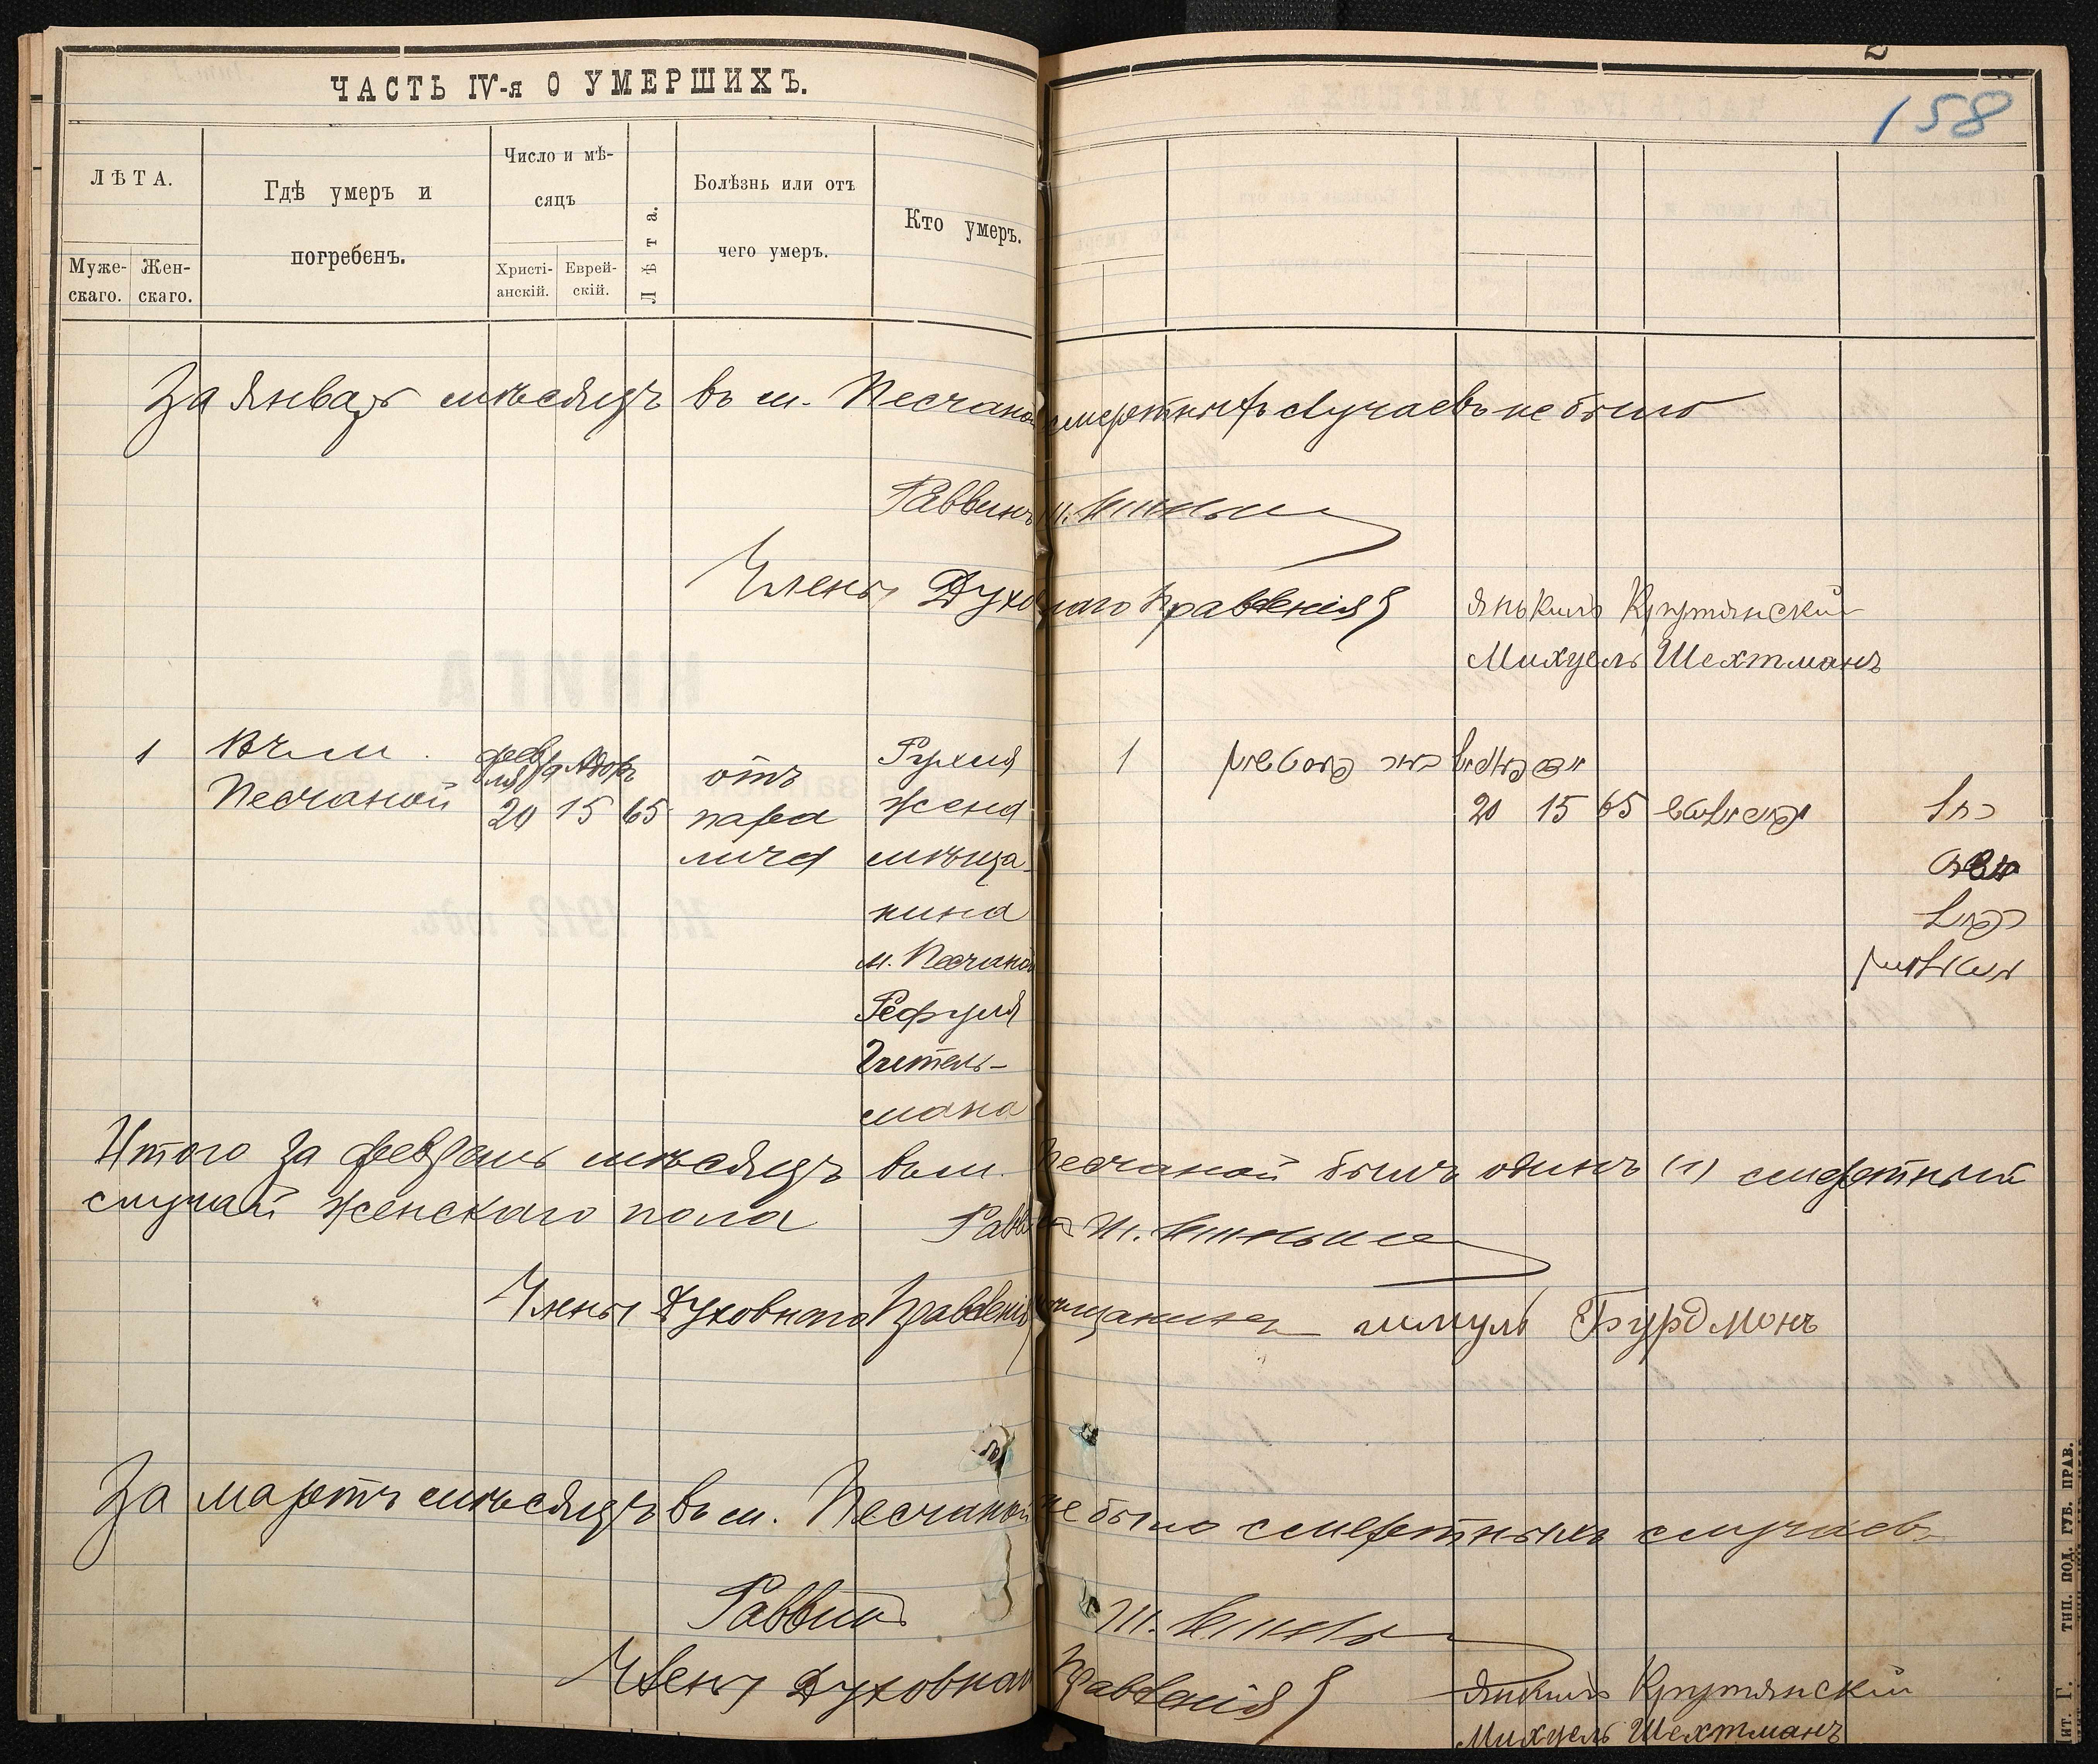 ЧАСТЬ IV-я О УМЕРШИХЪ.
158
ЛѢТА.
Муже-
скаго.
Жен-
скаго.
Гдѣ умеръ и
погребенъ.
Число и мѣ-
сяцъ
Христі-
анскій.
Еврей-
скій.
Лѣта.
Болѣзнь или отъ
чего умеръ.
Кто умеръ.
За январь мѣсяцъ въ м. Песчаной смертныхъ случаевъ не было
Раввинъ Ш.
Члены Духовнаго Правленія Янкиль Крутянскій
Михуель Шехтманъ
1
Въ м.
Песчаной
февр
аля
20
Адоръ
15
65
отъ
пара
лича
Рухля
жена
мѣща-
нина
м. Песчаной
Рефуля
Гитель-
мана
1
20 15 65
Итого за февраль мѣсяцъ въ м. Песчаной былъ одинъ (1) смертный
случай женскаго пола
Раввинъ Ш.
Члены Духовнаго Правленія шмуль Бурдмонъ
За мартъ мѣсяцъ въ м. Песчаной не было смертныхъ случаевъ
Раввинъ Ш.
Члены Духовнаго Правленія Янкиль Крутянскій
Михуель Шехтманъ
ТИП. ПОД. ГУБ. ПРАВ.